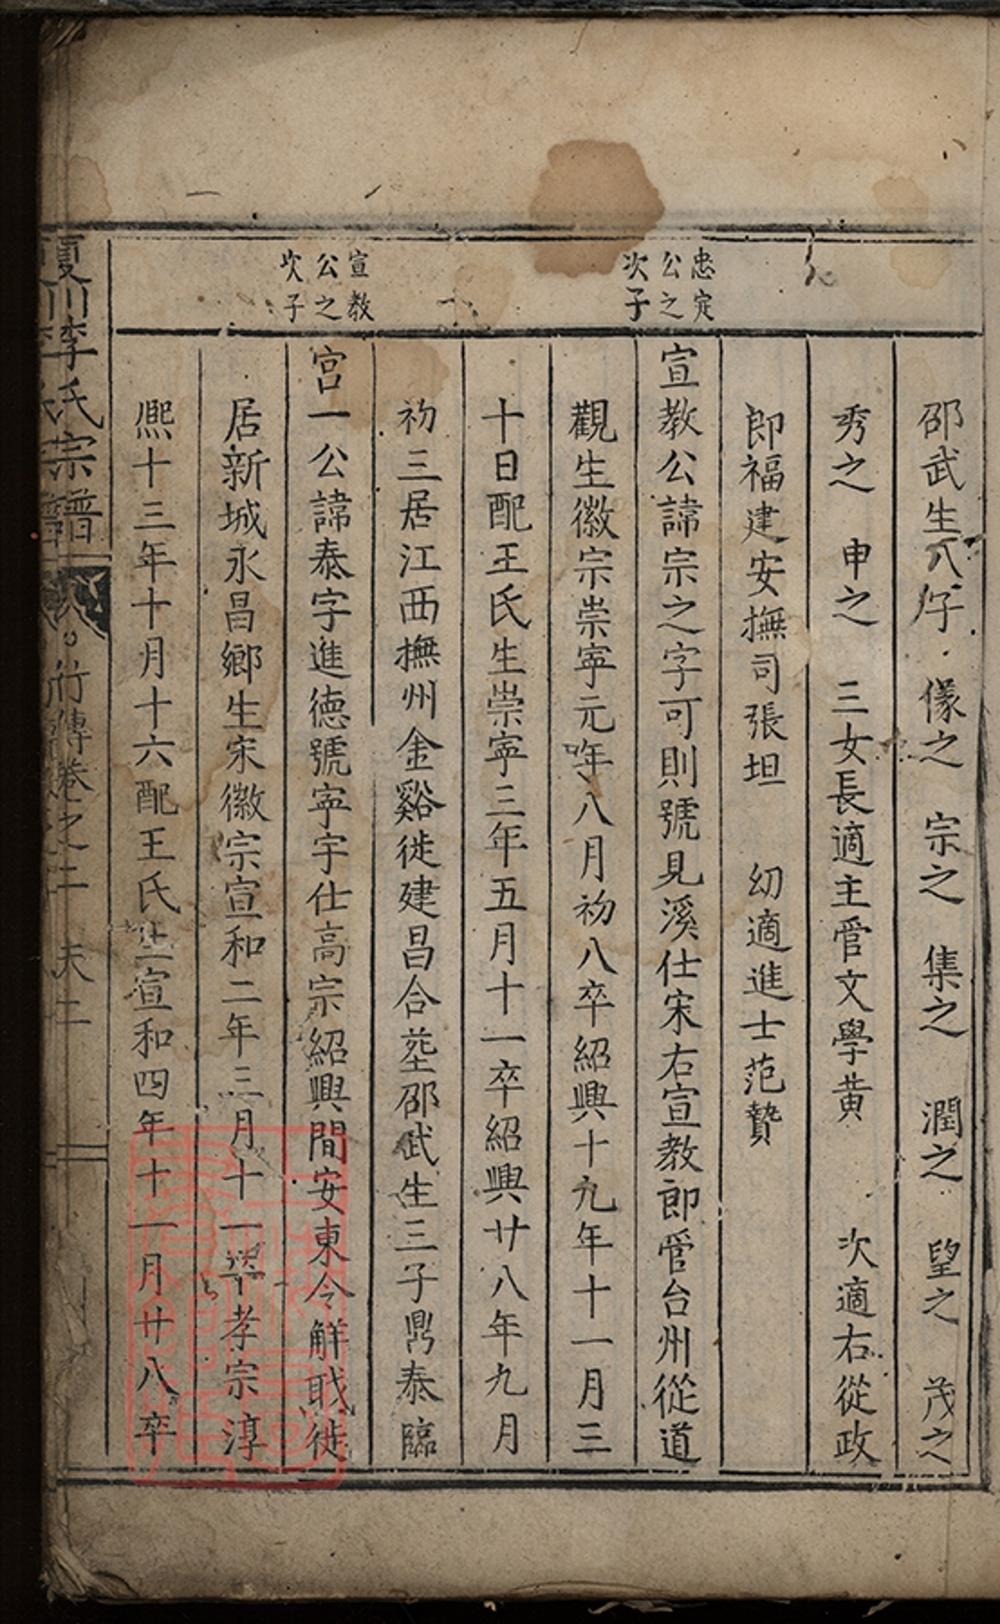 忠定公之次子
宣教公之次子
邵武生八子 儯之 宗之 集之 潤之 望之 茂之
秀之 申之 三女長適主管文學黄 次適右從政
郎福建安撫司張坦 幼適進士范贄
宣教公諱宗之字可則號見溪仕宋右宣教郎管台州從道
觀生徽宗崇寧元年八月初八卒紹興十九年十一月三
十日配王氏生崇寧三年五月十一卒紹興廿八年九月
初三居江西撫州金谿徙建昌合塟邵武生三子鼎泰臨
宫一公諱泰字進德號寧宇仕高宗紹興間安東令解戢徙
居新城永昌鄉生宋徽宗宣和二年三月十一卒孝宗淳
熈十三年十月十六配王氏生宣和四年十一月廿八卒
李氏宗譜 竹傳卷之二 天二